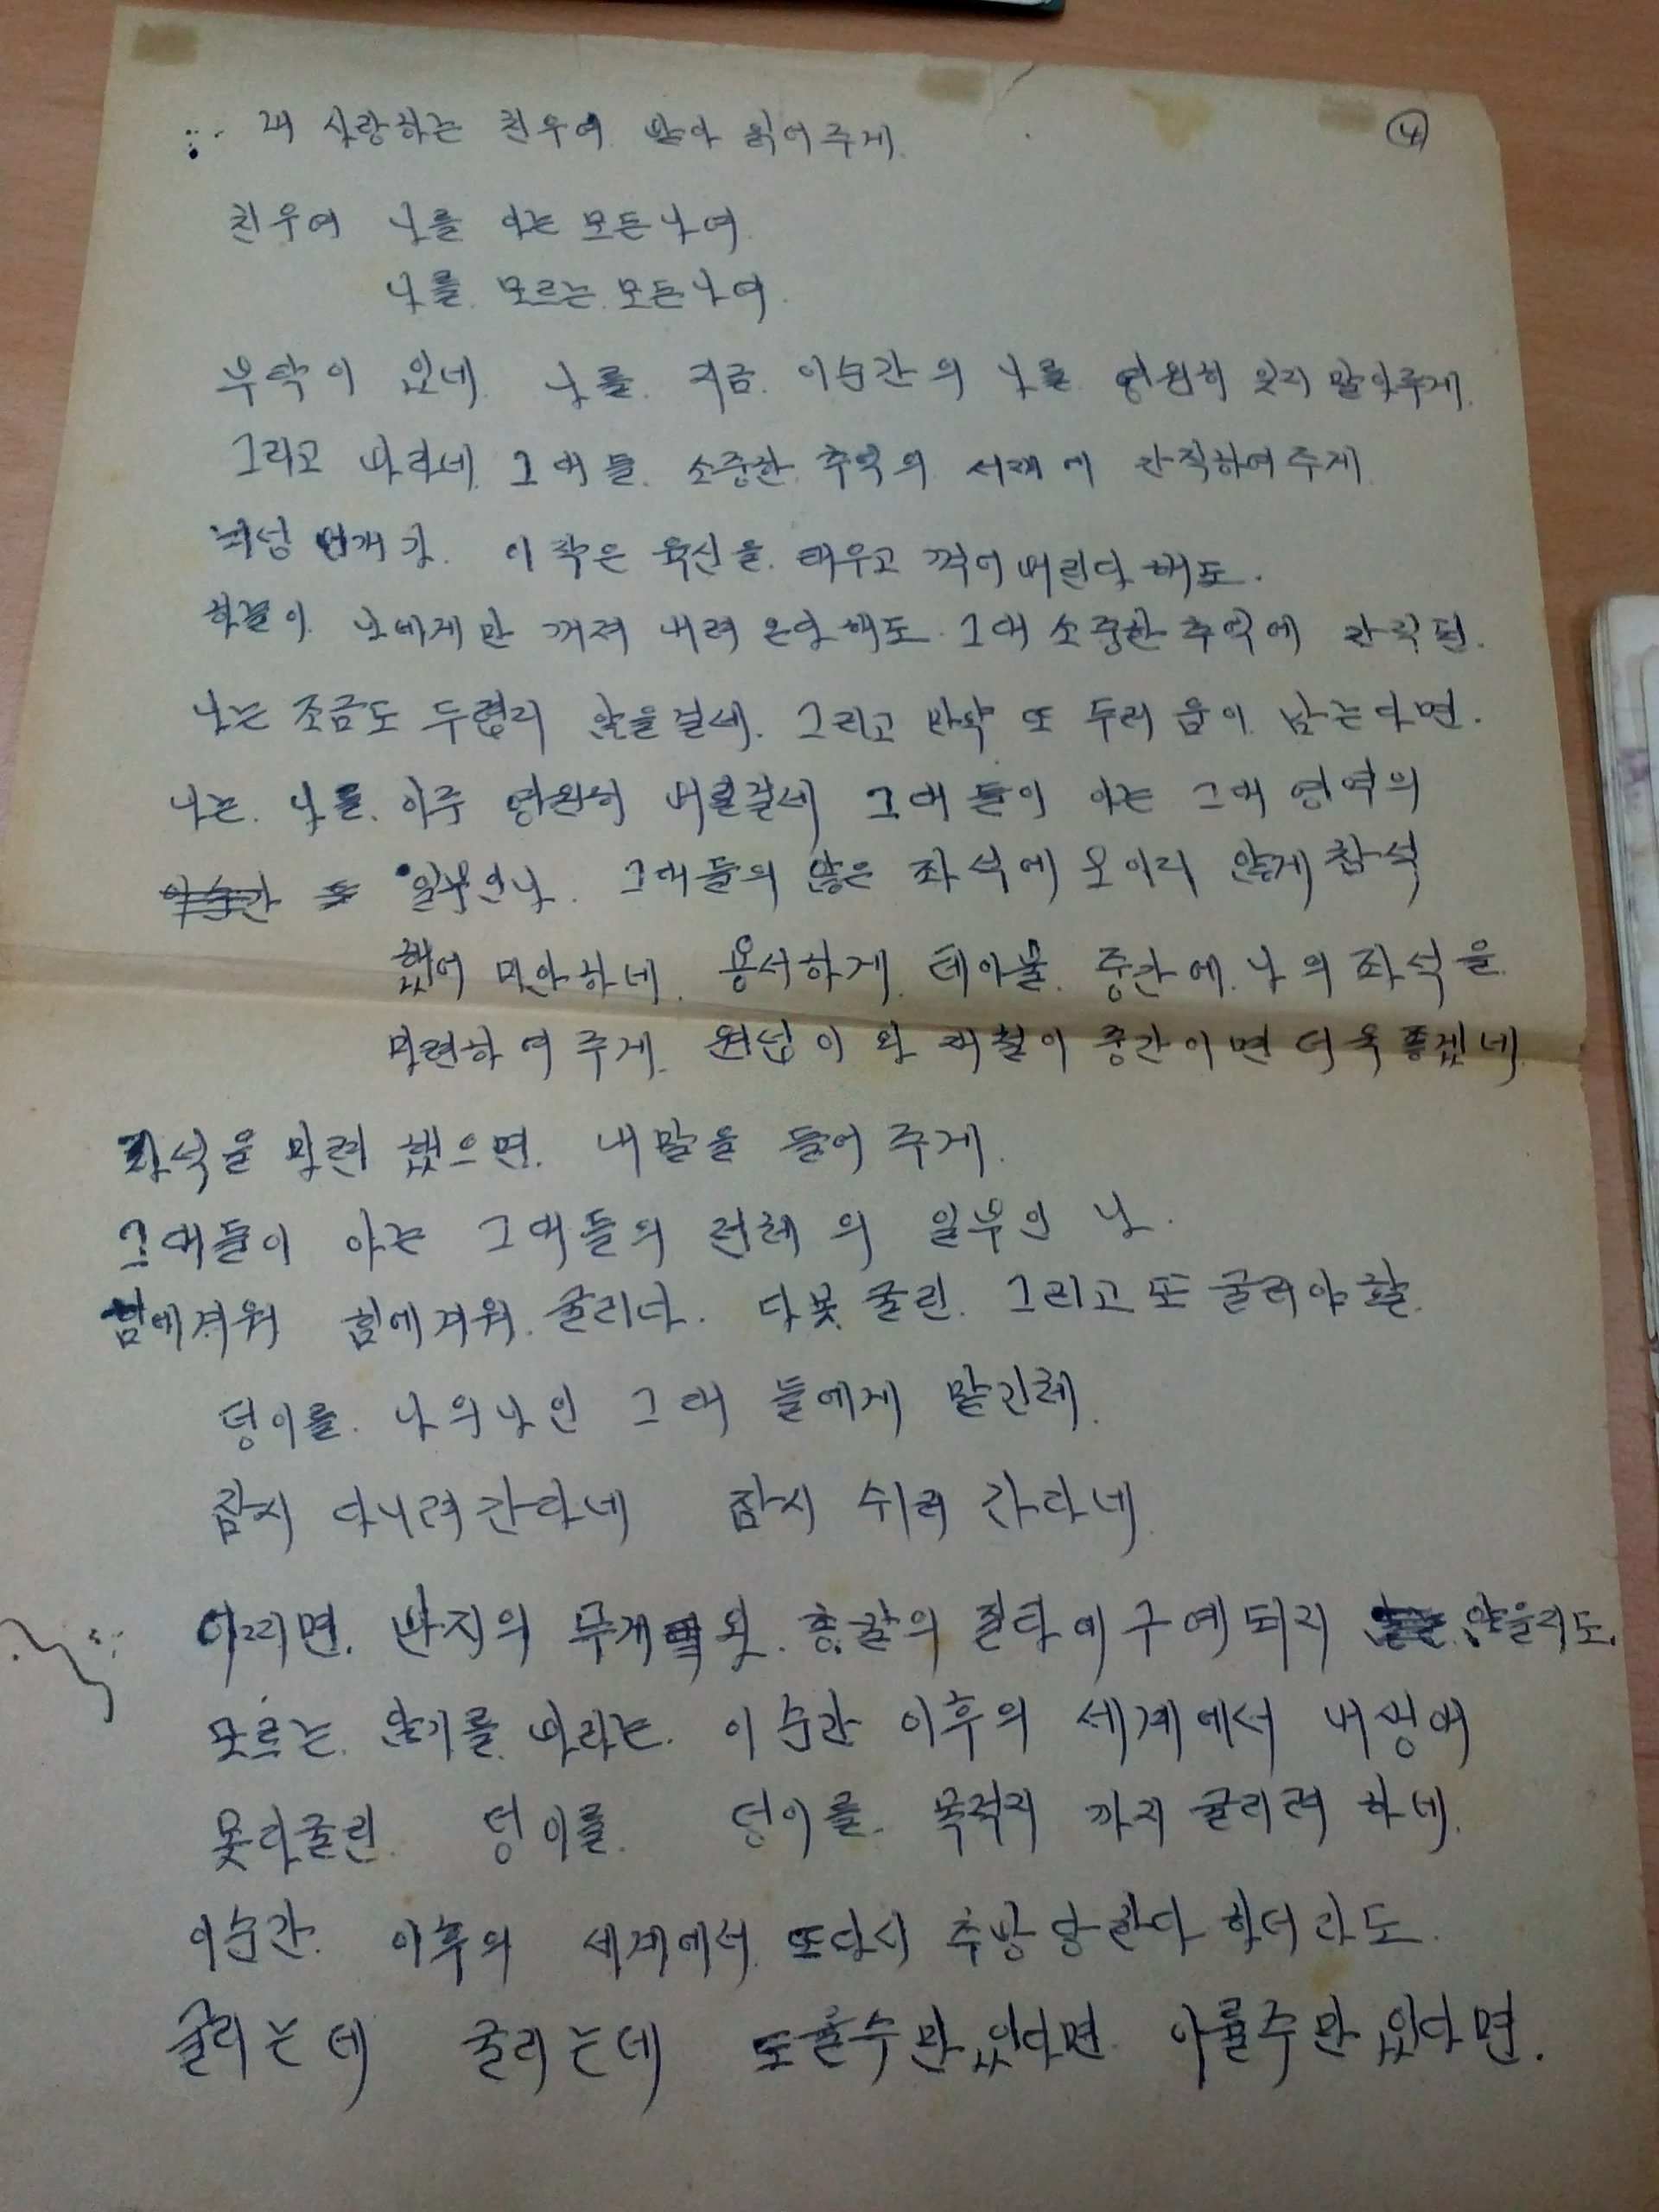 내 사랑하는 친우여. 받아 읽어주게.
④
친우여 나를 아는 모든 나여.
나를. 모르는. 모든 나여.
부탁이 있네. 나를. 지금. 이순간의 나를. 영원히 잊지 말아주게.
그리고 바라네. 그대들. 소중한. 추억의 서재에 간직하여주게.
뇌성 번개가. 이 작은 육신을. 태우고 꺽어버린다해도.
하늘이. 나에게만 꺼져 내려온다해도. 그대 소중한 추억에 간직된.
나는 조금도 두렵지 않을걸세. 그리고 만약 또 두려움이 남는다면.
나는. 나를. 아주 영원히 버릴걸세 그대들이 아는 그대 영역의
일부인 나. 그대들의 앉은 좌석에 보이지 않게 참석
했네 미안하네. 용서하게. 테이블. 중간에. 나의 좌석을
마련하여주게. 원섭이와 재철이 중간이면 더욱 좋겠네.
좌석을 마련했으면. 내말을 들어주게.
그대들이 아는 그대들의 전체의 일부인 나.
힘에겨워 힘에겨워. 굴리다. 다 못 굴린. 그리고 또 굴려야 할.
덩이를. 나의 나인 그대들에게 맡긴채.
잠시 다니러 간다네 잠시 쉬러 간다네
어쩌면. 반지의 무게와. 총칼의 질타에 구애되지 않을지도.
모르는. 않기를. 바라는. 이 순간 이후의 세계에서 내생에
못다굴린. 덩이를. 덩이를. 목적지까지 굴리려 하네.
이순간. 이후의 세계에서. 또다시 추방당한다 하더라도.
굴리는데 굴리는데 도울수만 있다면 이룰수만 있다면.